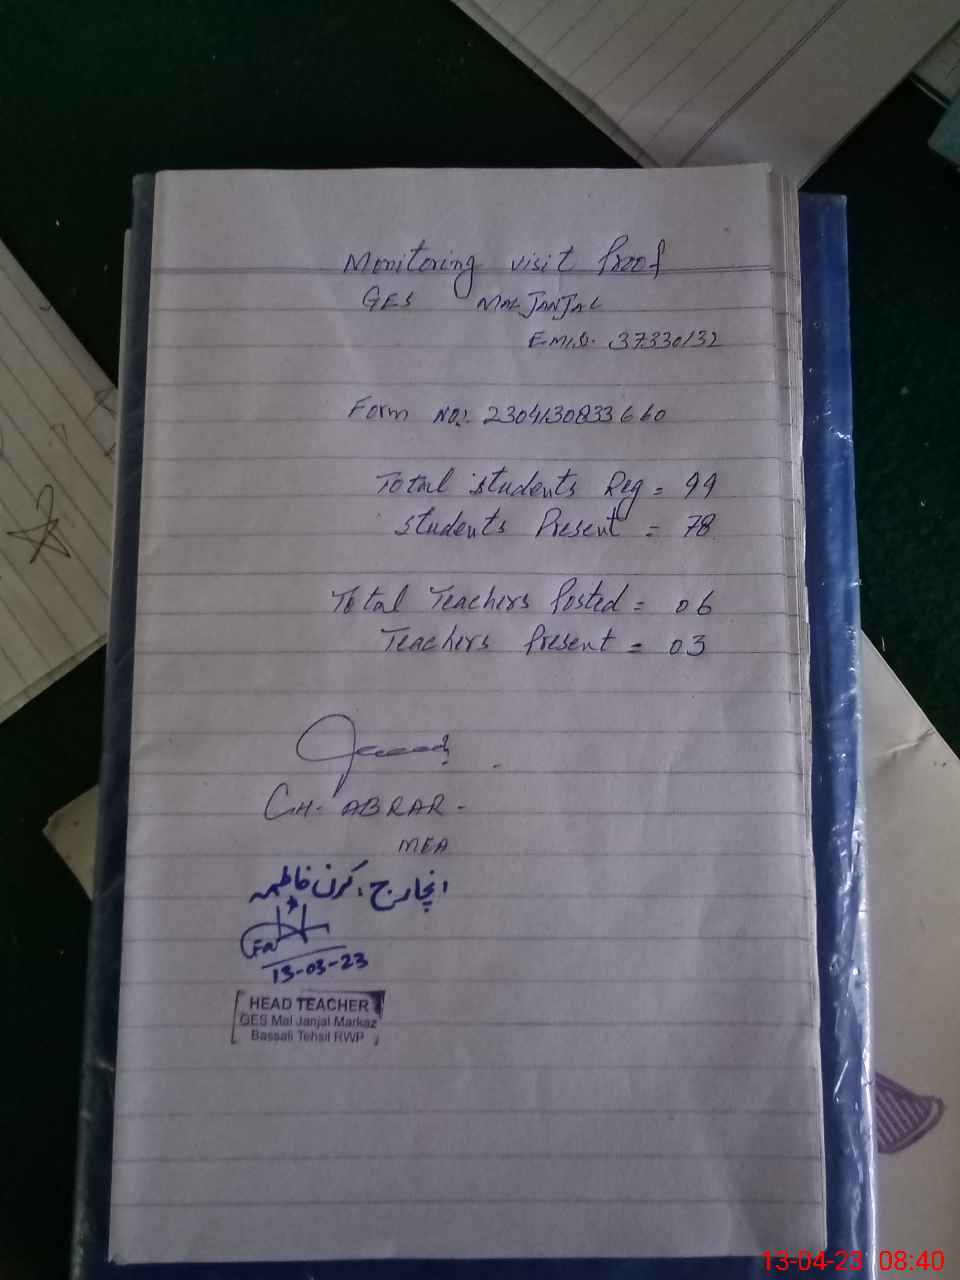 Monitoring visit Proof
GES MAL JANJAL
E.M.I.S. 37330132
Form NO: 2304130833660
Total students Reg = 99
students Present = 78
Total Teachers Posted = 06
Teachers Present = 03
CH. ABRAR.
MEA
انچارج: کرن فاطمہ
13-03-23
HEAD TEACHER
GES Mal Janjal Markaz
Bassali Tehsil RWP
13-04-23 08:40